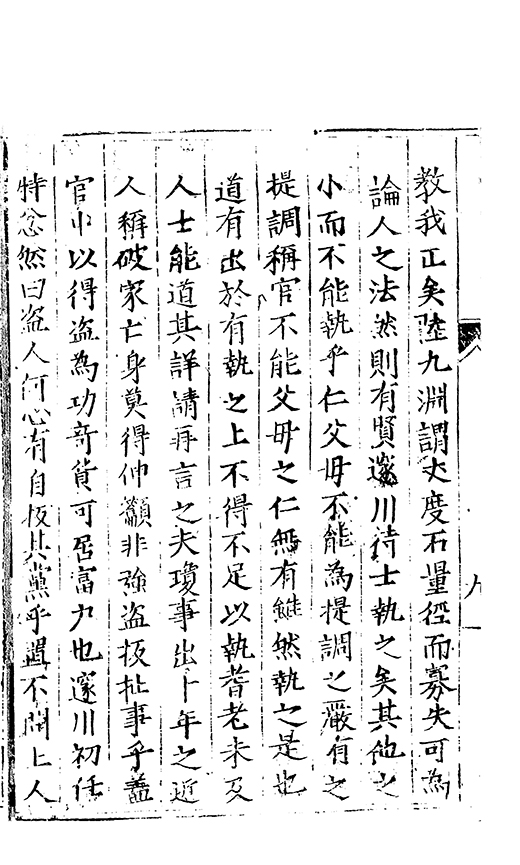 教我正矣陸九淵謂丈度石量徑而寡失可為
論人之法然則有賢邃川待士執之矣其他之
小而不能執乎仁父母不能為提調之嚴有之
提調稱官不能父母之仁無有雖然執之是也
道有出於有執之上不得不足以執耆老未及
人士能道其詳請再言之夫瓊事出十年之近
人稱破家亡身莫得伸籲非強盜扳扯事乎蓋
官中以得盜為功奇貨可居富力也邃川初任
特忿然曰盜人何心有自扳其黨乎置不問上人
九